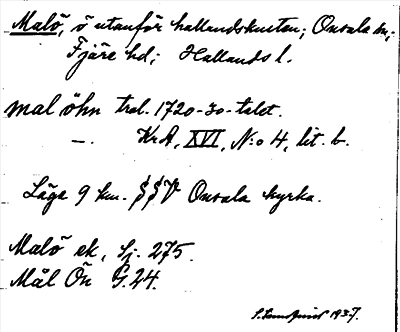 Malö, ö utanför hallandskusten; Onsala sn,;
Fjäre hd; Hallands l.
mal öhn trol. 1720-30-talet.
—. KrA, XVI, N:o 4, lit. b.
Läge 9 km. SSV Onsala kyrka.
Malö ek, Sj. 275.
Mål Ön G.24.
1937.